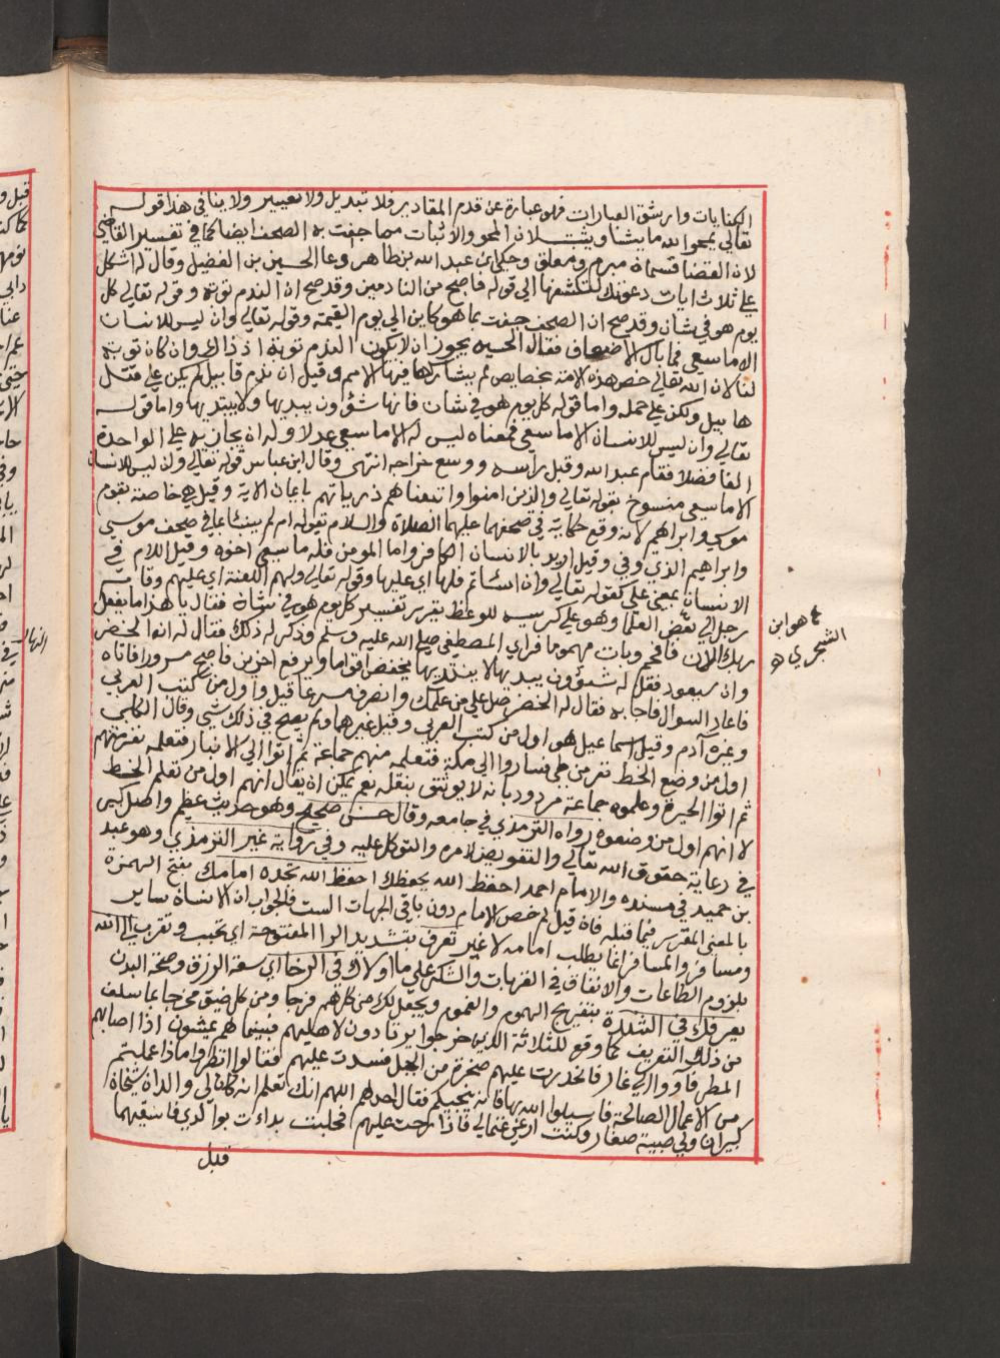 الكنايات وارشق العبارات فهو عبارة عن قدم المقادير فلا تبديل ولا تغيير ولا ينافي هذا قوله
تعالى يمحو الله ما يشا ويثبت لان المحو والاثبات مما جفت به الصحف ايضا كما في تفسير القاضي
لان القضا قسمان مبرم ومعلق وحكي ان عبد الله بن طاهر دعا الحسين بن الفضيل وقال له اشكل
علي ثلاث ايات دعوتك لتكشفها الي قوله فاصبح من النادمين وقد صح ان الندم توبة وقوله تعالى كل
يوم هو في شان وقد صح ان الصحف جفت بما هو كاين الي يوم القيمة وقوله تعالى وان ليس للانسان
الا ما سعي فما بال الاضعاف فقال الحسين يجوز ان لا يكون الندم توبة اذ ذاك وان كان توبة
لنا لان الله تعالى خص هذه الامة بخصايص لم يشاركها فيها الامم وقيل ان ندم قابيل لم يكن علي قتل
هابيل ولكن علي حمله واما قوله كل يوم هو في شان فانها شؤون يبديها ولا يبتديها واما قوله
تعالى وان ليس للانسان الا ما سعي فمعناه ليس له الا ما سعي عدلا وله ان يجازيه علي الواحدة
الفا فضلا فقام عبد الله وقبل راسه ووسع خراجه انتهى وقال ابن عباس قوله تعالى وان ليس للانسان
الا ما سعي منسوخ بقوله تعالى والذين امنوا واتبعناهم ذرياتهم بايمان الاية وقيل هي خاصة بقوم
موسي وابراهيم لانه وقع حكاية في صحفهما عليهما الصلاة والسلام بقوله ام لم ينبئا بما في صحف موسي
وابراهيم الذي وفي وقيل اريد بالانسان الكافر واما المومن فله ما سعي اخوه وقيل اللام في
الانسان بمعني علي كقوله تعالى وان اساتم فلها اي عليها وقوله تعالى ولهم اللعنة اي عليهم وقام
رجل الي بعض العلما وهو علي كرسيه للوعظ يقرر تفسير كل يوم هو في شان فقال يا هذا ما يفعل
ربك الان فافحم وبات مهموما فراي المصطفي صلي الله عليه وسلم وذكر له ذلك فقال له انه الخضر
وان سيعود فقل له شؤون يبديها لا يبتديها يخفض اقواما ويرفع اخرين فاصبح مسرورا فاتاه
فاعاد السوال فاجابه فقال له الخضر صل علي من علمك وانصرف مسرعا قيل واول من كتب العربي
وغيره آدم وقيل اسماعيل هو اول من كتب العربي وقيل غيرهما ولم يصح في ذلك شي وقال الكلبي
اول من وضع الخط نفر من طي فساروا الي مكة فتعلمه منهم جماعة ثم اتوا الي الانبار فتعلمه نفر منهم
ثم اتوا الحيرة وعلموه جماعة مردود بانه لا يوثق بنقله نعم يمكن ان يقال انهم اول من تعلم الخط
لا انهم اول من وضعوه رواه الترمذي في جامعه وقال حسن صحيح وهو حديث عظيم واصل كبير
في رعاية حقوق الله تعالى والتفويض لامره والتوكل عليه وفي رواية غير الترمذي وهو عبد
بن حميد في مسنده والامام احمد احفظ الله يحفظك احفظ الله تجده امامك بفتح الهمزة
بالمعنى المقرر فيما قبله فان قيل لم خص الامام دون باقي الجهات الست فالجواب ان الانسان ساير
ومسافر والمسافر انما يطلب امامه لا غير تعرف بتشديد الرا المفتوحة اي تحبب وتقرب الي الله
بلزوم الطاعات والانفاق في القربات والشكر علي ما اولاك في الرخا اي سعة الرزق وصحة البدن
يعرفك في الشدة بتفريج الهموم والغموم ويجعل لك من كل هم فرجا ومن كل ضيق مخرجا بما سلف
من ذلك التعريف كما وقع للثلاثة الذين خرجوا يرتادون لاهليهم فبينما هم يمشون اذا اصابهم
المطر فآووا الي غار فانحدرت عليهم صخرة من الجبل فسدت عليهم فقالوا انظروا ماذا عملتم
من الاعمال الصالحة فاسيلوا الله بها فانه ينجيكم فقال احدهم اللهم انك تعلم انه كان لي والدان شيخان
كبيران ولي صبية صغار وكنت ارعي غنما لي فاذا رحت عليهم فحلبت بداءت بوالدي فاسقيهما
قبل
هو ابن
الشجري